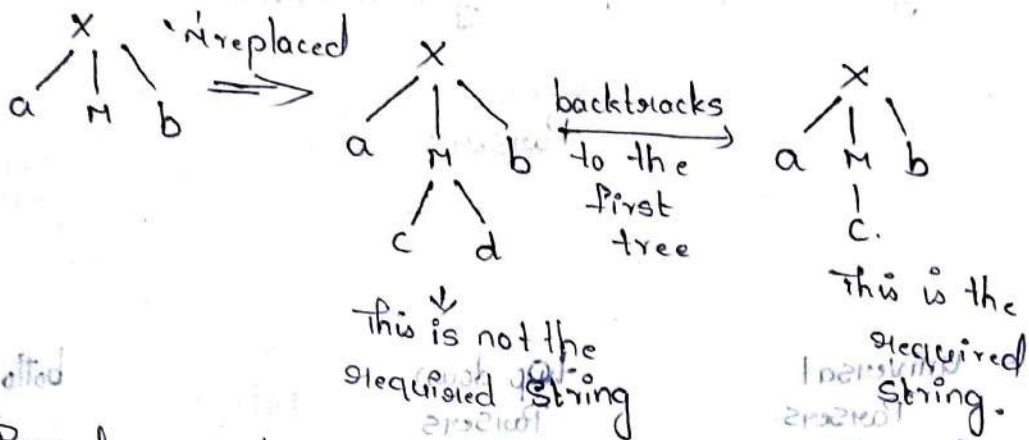 X
a M b
'M' replaced
X
a M b
c d
This is not the
required String
backtracks
to the
first
tree
X
a M b
c.
This is the
required
String.